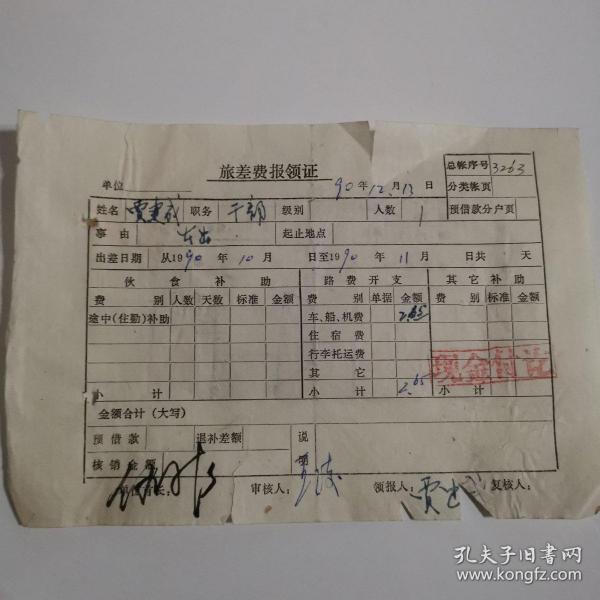 旅差费报领证
总帐序号 3263
单位 90年12月13日 分类帐页
姓名 职务 干部 级别 人数 1 预借款分户页
事由 起止地点
出差日期 从1990年10月 日至1990年11月 日共 天
伙食补助 路费开支 其它补助
费别 人数 天数 标准 金额 费别 单据 金额 费别 标准 金额
途中(住勤)补助 车、船、机费 2.65
住宿费
行李托运费
现金付讫
其它
小计 小计 2.65 小计
金额合计(大写)
预借款 退补差额 说明
核销金额
单位首长: 审核人: 领报人: 复核人:
孔夫子旧书网
www.kongfz.com